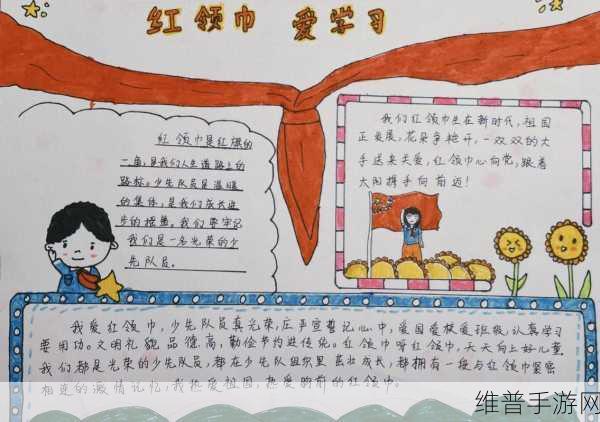 红领巾 爱学习
红领巾是红旗的
一角,是我们人生道路上的
路标。少先队员是温暖
的集体,是我们成长进
步的摇篮。我们要牢记
我们是一名光荣的少
先队员。
我们红领巾生在新时代,祖国
正发展,花朵争艳开,一双双的大
手送来关爱,红领巾心向党,跟着
太阳携手向前迈!
我爱红领巾,少先队员真光荣,庄严宣誓记心中,爱国爱校爱班级,认真学习
要用功。文明礼貌品德高,勤俭节约进传统。红领巾呀红领巾,天天向上好儿童
我们都是光荣的少先队员,都在少先队组织里茁壮成长,都拥有一段与红领巾紧密
相连的激情记忆,我热爱祖国,热爱的前的红领巾。
维普手游网